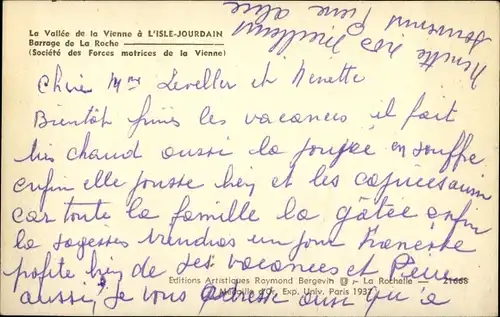 La Vallée de la Vienne à L'ISLE-JOURDAIN
Barrage de La Roche
(Société des Forces motrices de la Vienne)
Chère Mme Leveller et Ninette
Bientôt finies les vacances il fait
très chaud aussi la poupée en souffre
enfin elle pousse bien et les caprices aussi
car toute la famille la gâtée enfin
la sagesse viendras un jour Francette
profite bien de ses vacances et Pierre
aussi, je vous adresse ainsi qu'à
Ninette nos meilleurs
souvenirs
Editions Artistiques Raymond Bergevin - La Rochelle — 21668
Médaille d'Or, Exp. Univ. Paris 1937